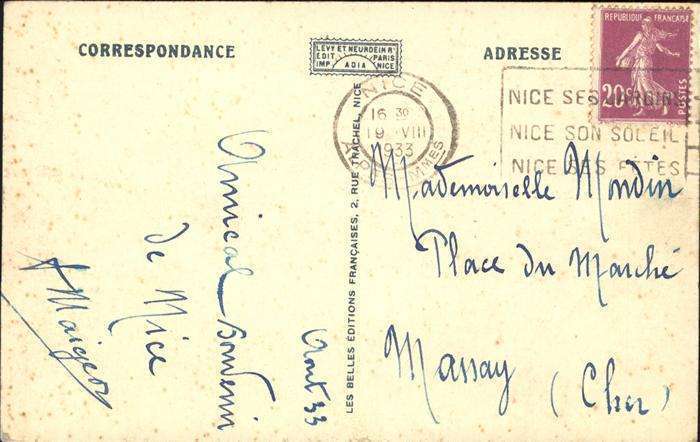 CORRESPONDANCE
LÉVY ET NEURDEIN Rs
EDIT PARIS
IMP ADIA NICE
ADRESSE
REPUBLIQUE FRANÇAISE
20c
POSTES
NICE
16 30
19 VIII
1933
NICE SES JARDINS
NICE SON SOLEIL
NICE SES FÊTES
Amical Souvenir
de Nice
Août 33
LES BELLES ÉDITIONS FRANÇAISES, 2, RUE TRACHEL, NICE
Mademoiselle Mondin
Place du Marché
Massay (Cher)